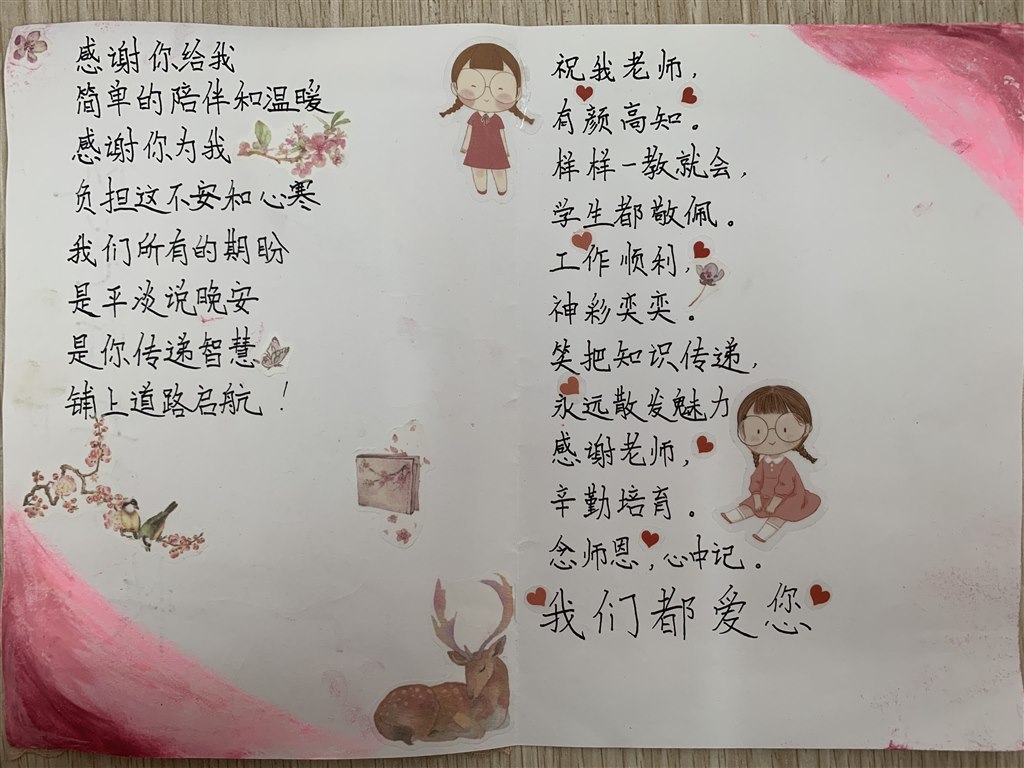 感谢你给我
简单的陪伴和温暖
感谢你为我
负担这不安和心寒
我们所有的期盼
是平淡说晚安
是你传递智慧
铺上道路启航！
祝我老师，
有颜高知。
样样一教就会，
学生都敬佩。
工作顺利，
神彩奕奕。
笑把知识传递，
永远散发魅力
感谢老师，
辛勤培育。
念师恩，心中记。
我们都爱您